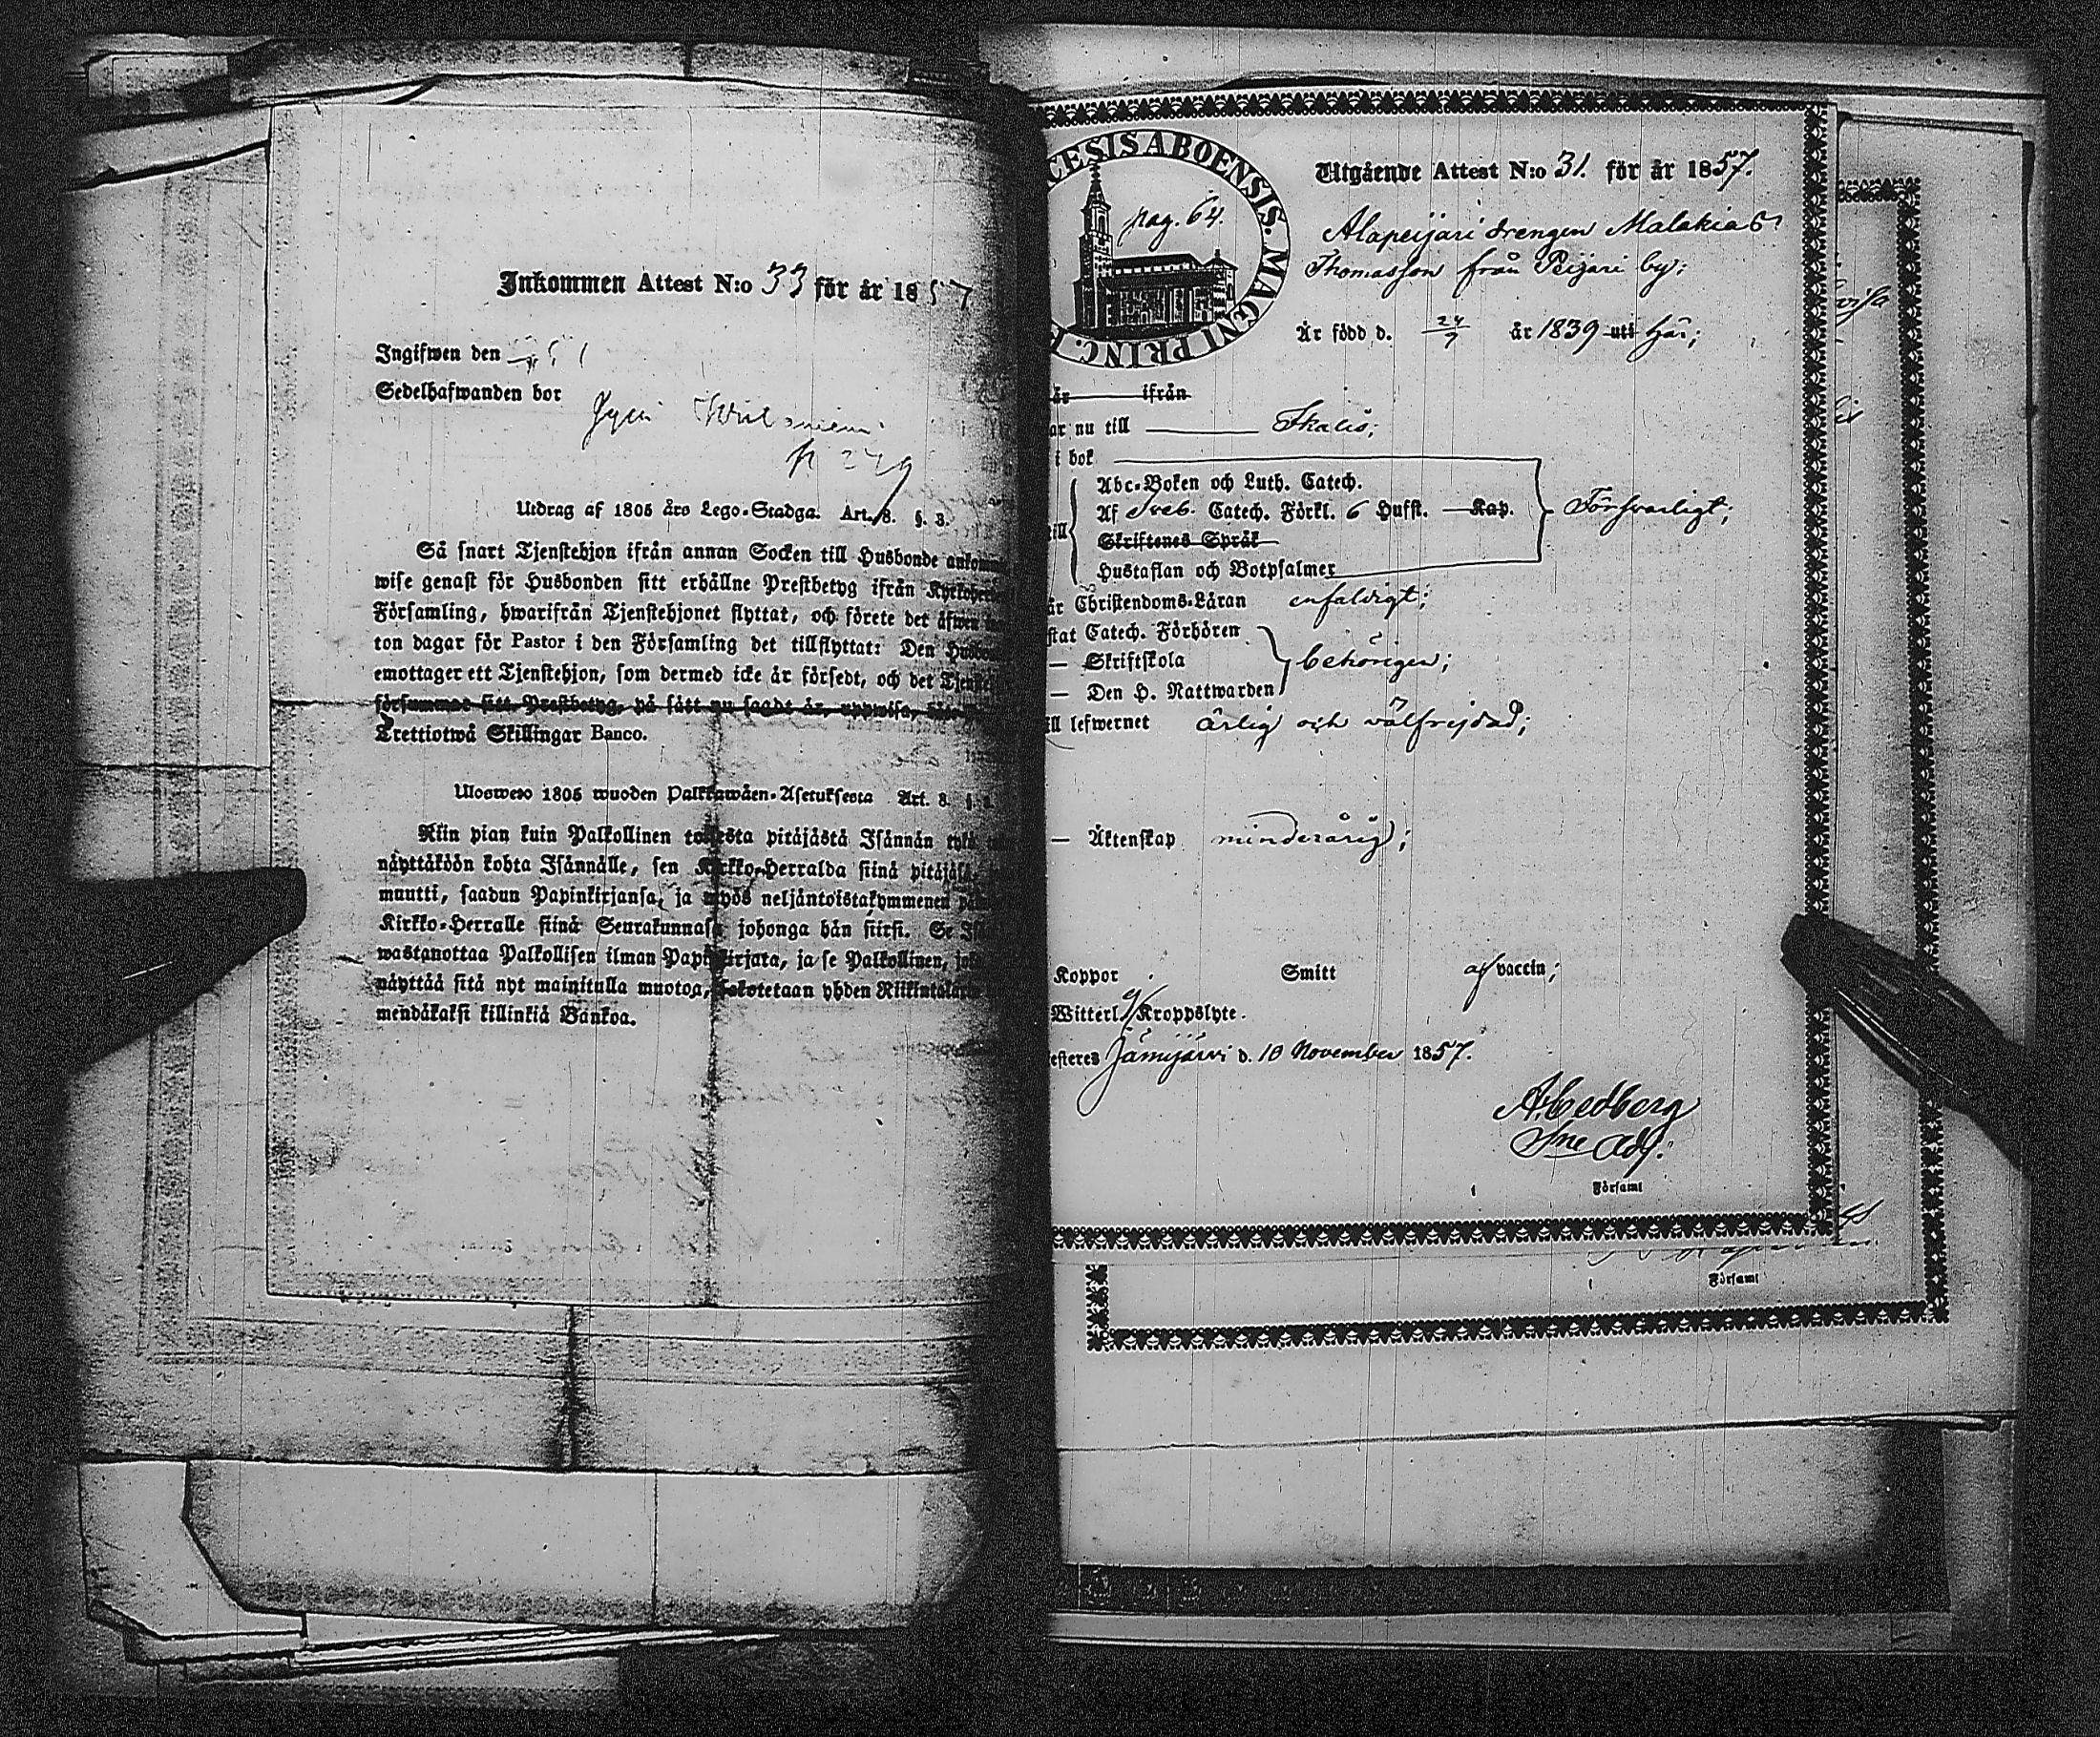 Inkommen Attest N:o 33 för år 1857
Ingifwen den
Sedelhafwanden bor
Utdrag af 1805 års Lego-Stadga. Art. 8. §. 3.
Så snart Tjenstehjon ifrån annan Socken till Husbonde
wise genast för Husbonden sitt erhållne Prestbetyg ifrån
Församling, hwarifrån Tjenstehjonet flyttat, och förete det äfwen
ton dagar för Pastor i den Församling det tillflyttat: Den
emottager ett Tjenstehjon, som dermed icke är försedt, och det
försummar sitt Prestbetyg, på sätt nu sagdt är, uppwisa,
Trettiotwå Skillingar Banco.
Uloswets 1805 wuoden Palkkawäen-Asetuksesta Art. 8. §.
Niin pian kuin Palkollinen toisesta pitäjästä Isännän tykö
näyttäköön kohta Isännälle, sen Kirkko-Herralda siinä
muutti, saadun Papinkirjansa, ja myös neljäntoistakymmenen
Kirkko-Herralle siinä Seurakunnasa johonga hän siirsi. Se
wastanottaa Palkollisen ilman Papinkirjata, ja se Palkollinen,
näyttää sitä nyt mainitulla muotoa, sakotetaan yhden
mendäkaksi killinkiä Bankoa.
CESIS ABOENSIS. MAGNI PRINC.
pag. 64.
Utgående Attest N:o 31. för år 1857.
Alapeijari drengen Malakias
Thomasson från Peijari by;
Är född d. 24/9 år 1839 uti här;
är ifrån
ar nu till Ikalis;
i bok
Abc-Boken och Luth. Catech.
Af Sveb. Catech. Förkl. 6 Hufst. — Kap.
Skriftenes Språk
Hustaflan och Botpsalmer
Försvarligt;
är Christendoms-Läran enfaldigt;
stat Catech. Förhören
— Skriftskola
— Den H. Nattwarden
behörigen;
ill lefwernet ärlig och välfrejdad;
— Äktenskap minderårig;
Koppor Smitt af vaccin;
Witterl. Kroppslyte.
esteres Jämijärvi d. 10 November 1857.
Församl
Församl